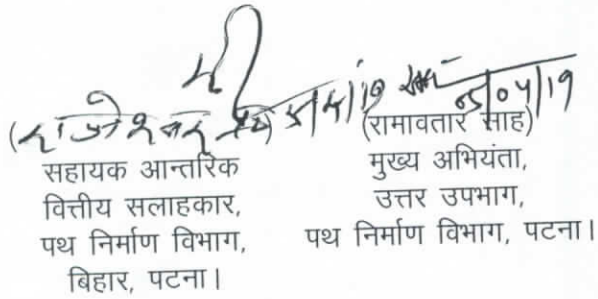 (राजेश्वर
सहायक आन्तरिक
वित्तीय सलाहकार,
पथ निर्माण विभाग,
बिहार, पटना।
(रामावतार साह)
मुख्य अभियंता,
उत्तर उपभाग,
पथ निर्माण विभाग, पटना।